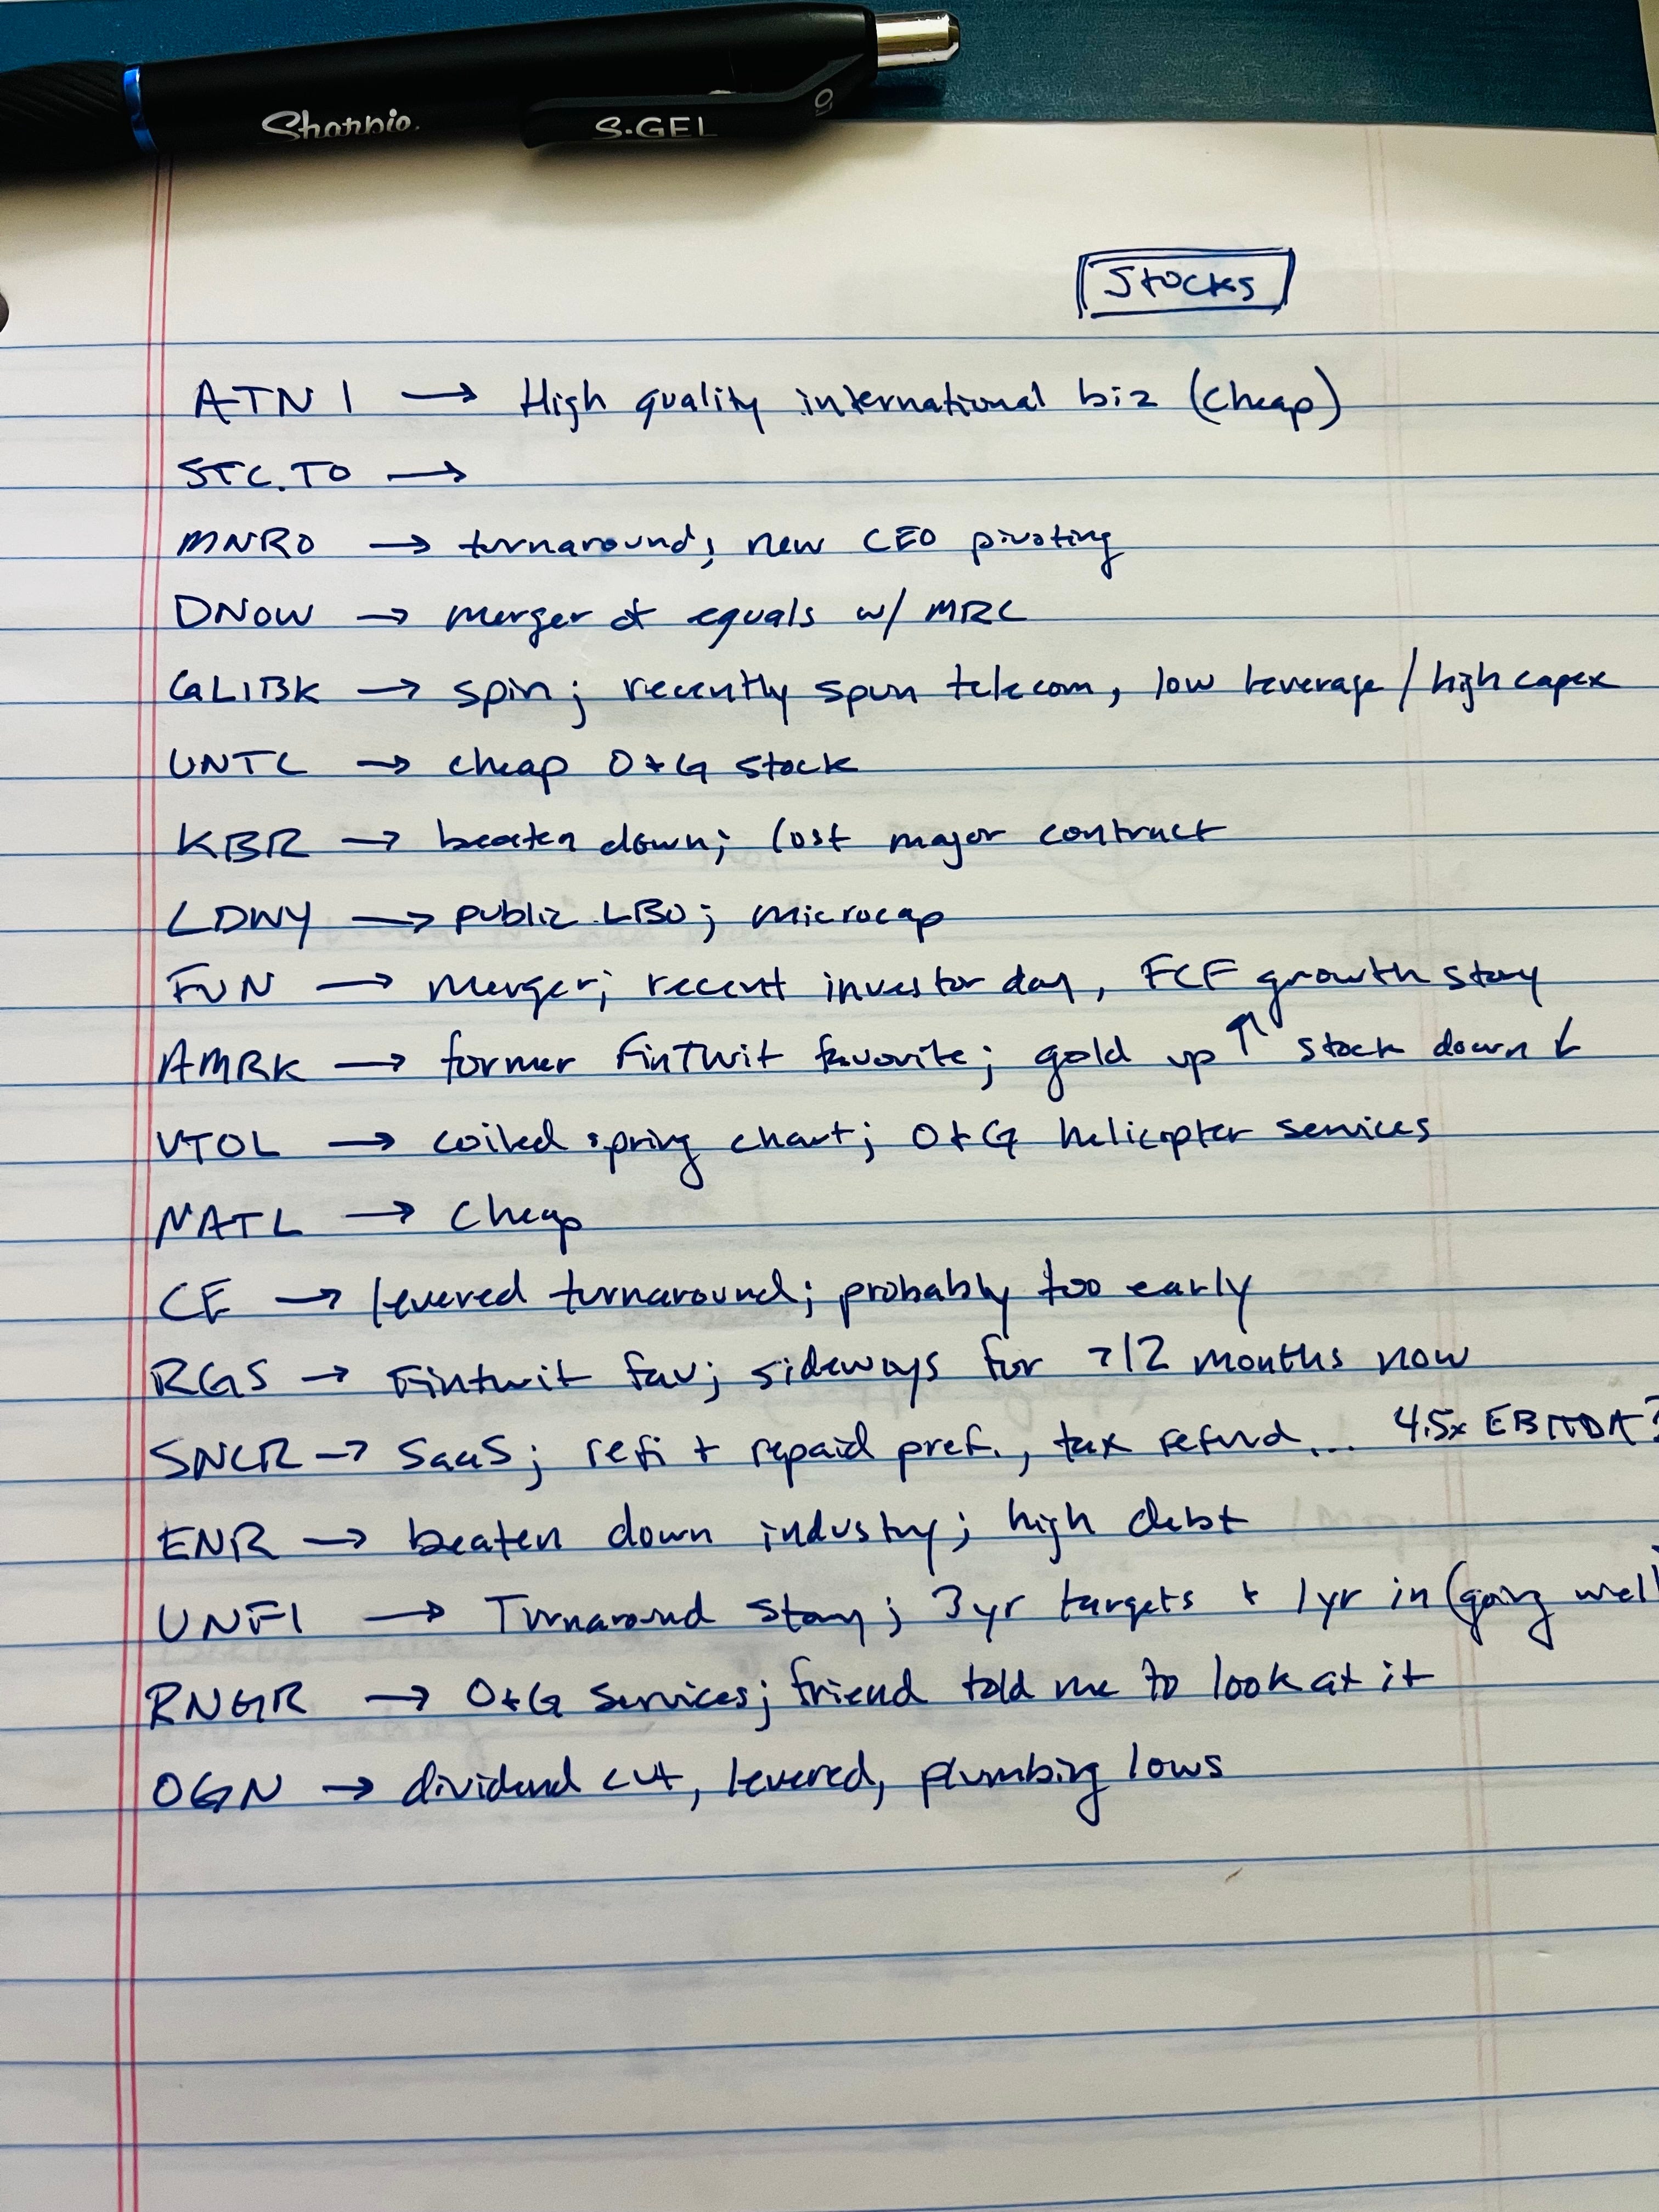 Sharpie.
S·GEL
Stocks
ATNI → High quality international biz (cheap)
STC.TO →
MNRO → turnaround; new CEO pivoting
DNOW → merger of equals w/ MRC
GLIBK → spin; recently spun telecom, low leverage / high capex
UNTC → cheap O+G stock
KBR → beaten down; lost major contract
LDWY → public LBO; microcap
FUN → merger; recent investor day, FCF growth story
AMRK → former FinTwit favorite; gold up ↑ stock down ↓
VTOL → coiled spring chart; O+G helicopter services
NATL → cheap
CE → levered turnaround; probably too early
RGS → Fintwit fav; sideways for >12 months now
SNCR → SaaS; refi + repaid pref., tax refund... 4.5x EBITDA?
ENR → beaten down industry; high debt
UNFI → Turnaround story; 3yr targets + 1yr in (going well)
RNGR → O+G services; friend told me to look at it
OGN → dividend cut, levered, plumbing lows